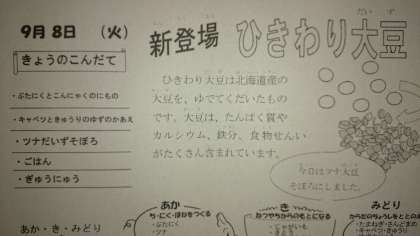 9月8日 （火）
きょうのこんだて
・ぶたにくとこんにゃくのにもの
・キャベツときゅうりのゆずのかあえ
・ツナだいずそぼろ
・ごはん
・ぎゅうにゅう
あか・き・みどり
新登場 ひきわり大豆
ひきわり大豆は北海道産の
大豆を、ゆでてくだいたもの
です。大豆は、たんぱく質や
カルシウム、鉄分、食物せんい
がたくさん含まれています。
今日はツナ大豆
そぼろにしました。
あか
ち・にく・ほねをつくる
・ぶたにく
・ツナ
き
ねつやちからのもとになる
みどり
からだのちょうしをととの
・たまねぎ
・キャベツ・きゅうり